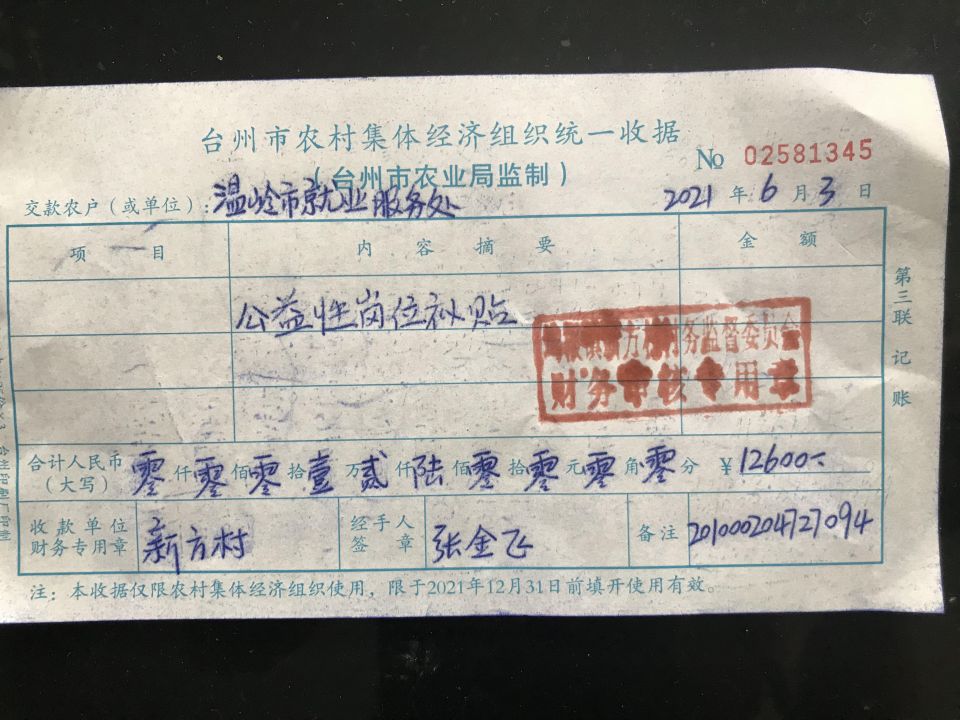 台州市农村集体经济组织统一收据
(台州市农业局监制)
№ 02581345
交款农户(或单位):温岭市就业服务处 2021年6月3日
项目 内容摘要 金额
公益性岗位补贴
村务监督委员会
财务审核专用章
合计人民币(大写) 零仟零佰零拾壹万贰仟陆佰零拾零元零角零分 ¥12600-
收款单位财务专用章 新方村 经手人签章 张金飞 备注 201000204727094
注:本收据仅限农村集体经济组织使用,限于2021年12月31日前填开使用有效。
第三联 记账